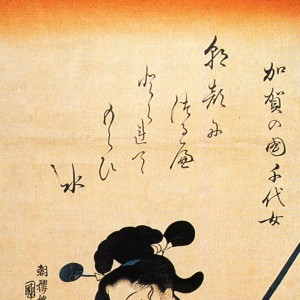 加賀の國千代女
朝顔に
つるべ
とられて
もらひ
水
朝櫻楼
國芳